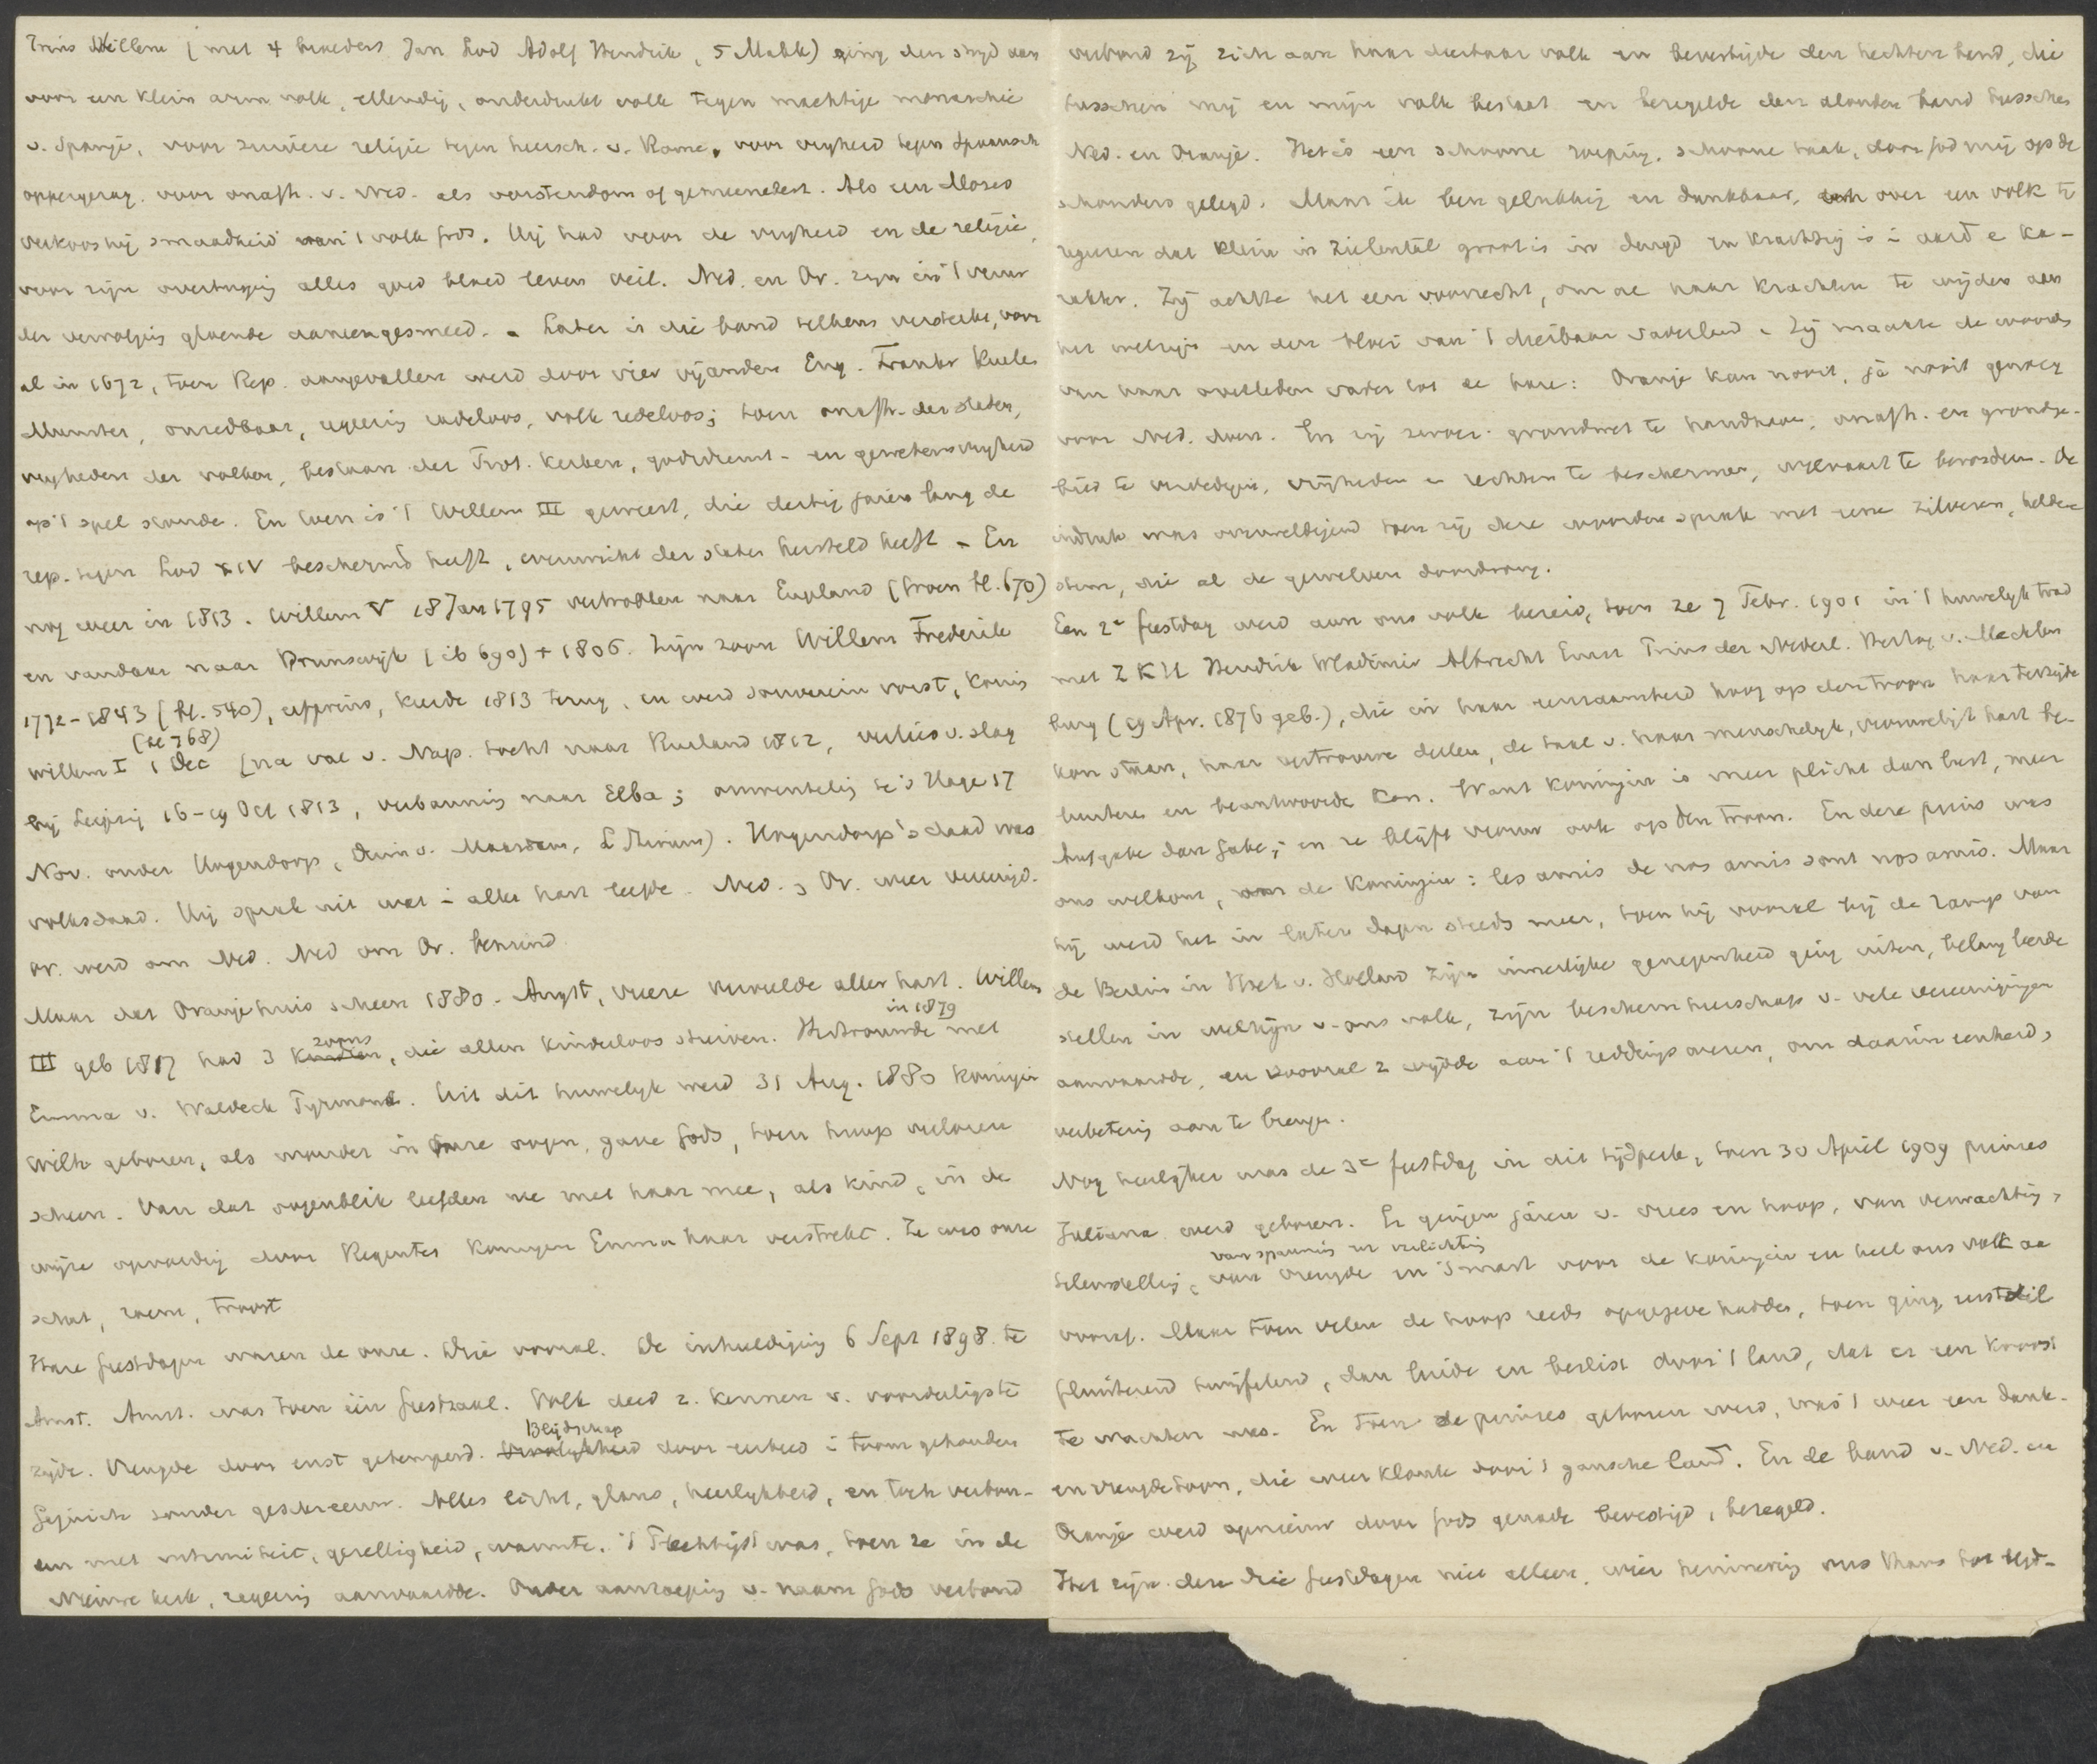 Prins Willem (met 4 broeders Jan Lod Adolf Hendrik, 5 Mabb) ging den strijd aan
voor een klein arm volk, ellendig, onderdrukt volk tegen machtige monarchie
v. Spanje, voor zuivere religie tegen heersch. v. Rome, voor vryheid tegen Spaansch
oppergezag. voor onafh. v. Ned. als vorstendom of gemeenebest. Als een Mozes
verkoos hij smaadheid van 't volk Gods. Hij had voor de vryheid en de religie,
voor zijn overtuiging alles goed bloed leven veil. Ned. en Or. zyn in 't vuur
der vervolging gloende aaneengesmeed. - Later is die band telkens versterkt, voor
al in 1672, toen Rep. aangevallen werd door vier vyanden Eng. Frankr Keulen
Munster, onredbaar, regeering radeloos, volk redeloos; toen onafh. der staten,
vryheden der volken, bestaan der Prot. kerken, godsdienst- en gewetensvryheid
op 't spel stonden. En toen is 't Willem III geweest, die dertig jaren lang de
rep. tegen Lod XIV beschermd heeft, evenwicht der staten hersteld heeft - En
nog weer in 1813. Willem V 18 Jan 1795 vertrokken naar Engeland (Groen bl. 670)
en vandaar naar Brunswijk (ib 690) + 1806. Zijn zoon Willem Frederik
1772-1843 (bl. 540), erfprins, keerde 1813 terug, en werd souverein vorst, Konin
(bl 768)
Willem I 1 Dec (na val v. Nap. tocht naar Rusland 1812, verlies v. slag
bij Leipzig 16-19 Oct 1813, verbanning naar Elba; omwenteling te 's Hage 17
Nov. onder Hogendorp, Duin v. Maasdam, L Stirum). Hogendorp's daad was
volksdaad. Hij sprak uit wat i aller hart leefde. Ned. en Or. weer vereenigd.
Or. werd om Ned. Ned om Or. bemind.
Maar dat Oranjehuis scheen 1880 - Angst, vreeze vervulde aller hart. Willem
in 1879
III geb 1817 had 3 kinderen zoons, die allen kinderloos stierven. Hertrouwde met
Emma v. Waldeck Pyrmont. Uit dit huwelyk werd 31 Aug. 1880 Koningin
Wilh geboren, als wonder in onze oogen, gave Gods, toen hoop verloren
scheen. Van dat oogenblik leefden we met haar mee, als kind, in de
wijze opvoeding door Regentes Koningin Emma haar verstrekt. Ze was onze
schat, roem, troost
Hare feestdagen waren de onze. Drie vooral. De inhuldiging 6 Sept 1898. te
Amst. Amst. was toen één feestzaal. Volk deed z. kennen v. voordeeligste
zyde. Vreugde door ernst getemperd. Blijdschap door eerbied i toom gehouden
Gejuich zonder geschreeuw. Alles licht, glans, heerlykheid, en toch verbon-
den met intimiteit, gezelligheid, warmte. 't Plechtigst was, toen ze in de
Nieuwe kerk, regeering aanvaardde. Onder aanroeping v. naam Gods verbond
verbond zij zich aan haar dierbaar volk en bevestigde den hechten band, die
tusschen mij en mijn volk bestaat en bezegelde den alouden band tusschen
Ned. en Oranje. Het is een schoone roeping, schoone taak, door God mij op de
schouders gelegd. Maar ik ben gelukkig en dankbaar, over een volk te
regeeren dat klein in zielental groot is in deugd en krachtig is i aard e ka-
rakter. Zij achtte het een voorrecht, om al haar krachten te wijden aan
het welzijn en den bloei van 't dierbaar vaderland. Zij maakte de woorden
van haar overleden vader tot de hare: Oranje kan nooit, ja nooit genoeg
voor Ned. doen. En zij zwoer grondwet te handhaven, onafh. en grondge-
bied te verdedigen, vrijheden en rechten te beschermen, welvaart te bevorderen. De
indruk was overweldigend toen zij deze woorden sprak met eene zilveren, heldere
stem, die al de gewelven doordrong.
Een 2e feestdag werd aan ons volk bereid, toen ze 7 Febr. 1901 in 't huwelijk trad
met Z K H Hendrik Wladimir Albrecht Ernst Prins der Nederl. Hertog v. Mecklen
burg (19 Apr. 1876 geb.), die in haar eenzaamheid hoog op den troon haar terzijde
kon staan, haar vertrouwen deelen, de taal v. haar menschelyk, vrouwelijk hart be-
luisteren en beantwoorden kon. Want koningin is meer plicht dan lust, meer
Aufgabe dan Gabe; en ze blijft vrouw ook op den troon. En deze prins was
ons welkom, om de Koningin: les amis de nos amis sont nos amis. Maar
hij werd het in latere dagen steeds meer, toen hij vooral bij de ramp van
de Berlin in Hoek v. Holland zijn innerlijke genegenheid ging uiten, belang leerde
stellen in welzijn v. ons volk, zijn beschermheerschap v. vele vereenigingen
aanvaardde, en vooral z wijdde aan 't reddingswezen, om daarin eenheid,
verbetering aan te brengen.
Nog heerlijker was de 3e feestdag in dit tijdperk, toen 30 April 1909 prinses
Juliana werd geboren. Er gingen jaren v. vrees en hoop, van verwachting,
van spanning en verlichting
teleurstelling, van vreugde en smart voor de koningin en heel ons volk aan
vooraf. Maar toen velen de hoop reeds opgegeven hadden, toen ging eerst stil
fluisterend twijfelend, dan luide en beslist door 't land, dat er een kroost
te wachten was. En toen de prinses geboren werd, was 't weer een dank-
en vreugdetoon, die weerklonk door 't gansche land. En de band v. Ned. en
Oranje werd opnieuw door Gods genade bevestigd, bezegeld.
Het zijn deze drie feestdagen niet alleen, wier herinnering ons thans tot blijd-